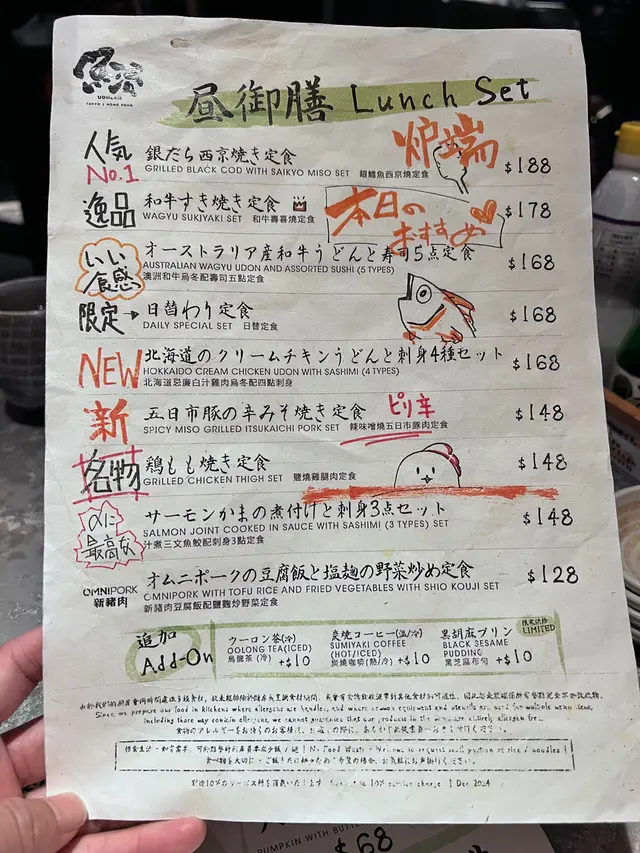 魚治
UOHARU
TOKYO | HONG KONG
昼御膳 Lunch Set
炉端
人気
No.1
銀だら西京焼き定食
GRILLED BLACK COD WITH SAIKYO MISO SET 銀鱈魚西京燒定食
$188
逸品
和牛すき焼き定食
WAGYU SUKIYAKI SET 和牛壽喜燒定食
$178
本日の
おすすめ
いい
食感
オーストラリア産和牛うどんと寿司5点定食
AUSTRALIAN WAGYU UDON AND ASSORTED SUSHI (5 TYPES)
澳洲和牛烏冬配壽司五點定食
$168
限定→
日替わり定食
DAILY SPECIAL SET 日替定食
$168
NEW
北海道のクリームチキンうどんと刺身4種セット
HOKKAIDO CREAM CHICKEN UDON WITH SASHIMI (4 TYPES)
北海道忌廉白汁雞肉烏冬配四點刺身
$168
新
五日市豚の辛みそ焼き定食
ピリ辛
SPICY MISO GRILLED ITSUKAICHI PORK SET 辣味噌燒五日市豚肉定食
$148
名物
鶏もも焼き定食
GRILLED CHICKEN THIGH SET 鹽燒雞腿肉定食
$148
最高な
サーモンかまの煮付けと刺身3点セット
SALMON JOINT COOKED IN SAUCE WITH SASHIMI (3 TYPES) SET
汁煮三文魚鮫配刺身3點定食
$148
OMNIPORK
新豬肉
オムニポークの豆腐飯と塩麹の野菜炒め定食
OMNIPORK WITH TOFU RICE AND FRIED VEGETABLES WITH SHIO KOUJI SET
新豬肉豆腐飯配鹽麴炒野菜定食
$128
追加
Add-On
ウーロン茶(冷)
OOLONG TEA(ICED)
烏龍茶(冷) +$10
炭焼コーヒー(温/冷)
SUMIYAKI COFFEE
(HOT/ICED)
炭燒咖啡(熱/冷) +$10
黒胡麻プリン
BLACK SESAME
PUDDING
黑芝麻布甸 +$10
LIMITED
Since we prepare our food in kitchens where allergens are handled, and where common equipment and utensils are used for multiple menu items,
including those may contain allergens, we cannot guarantee that our products in the menu are entirely allergen free.
No Food Waste - Welcome to request small portion of rice & noodles!
10% service charge | Dec 2024
PUMPKIN WITH
$68